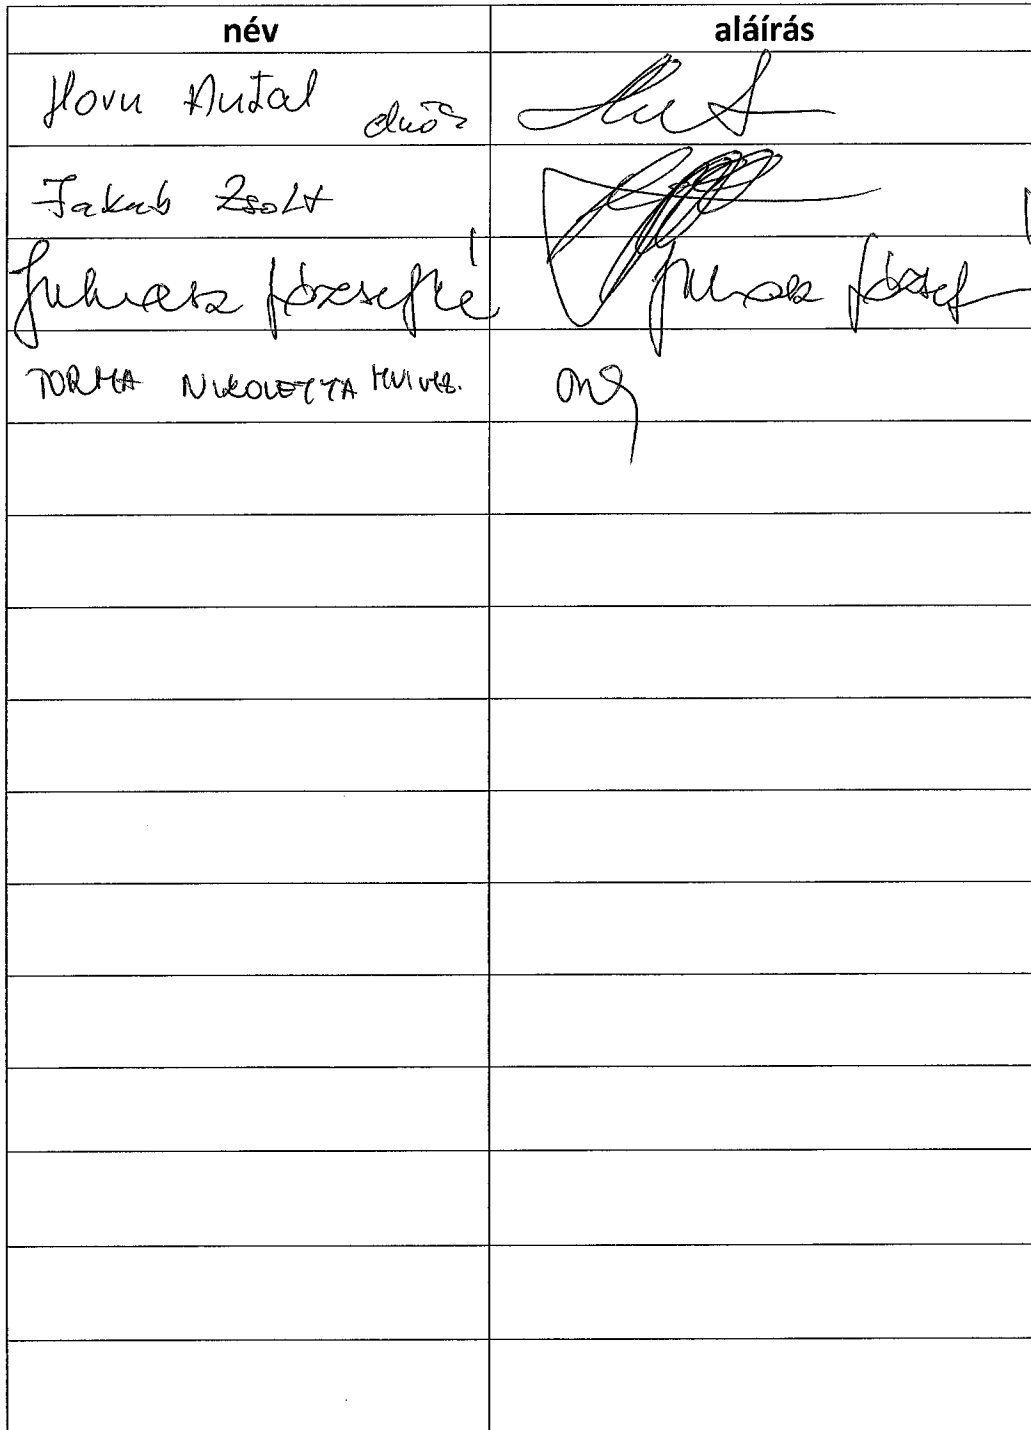 név aláírás
Horn Antal elnök
Jakab Zsolt
Juhász Józsefné Juhász József
TORMA NIKOLETTA